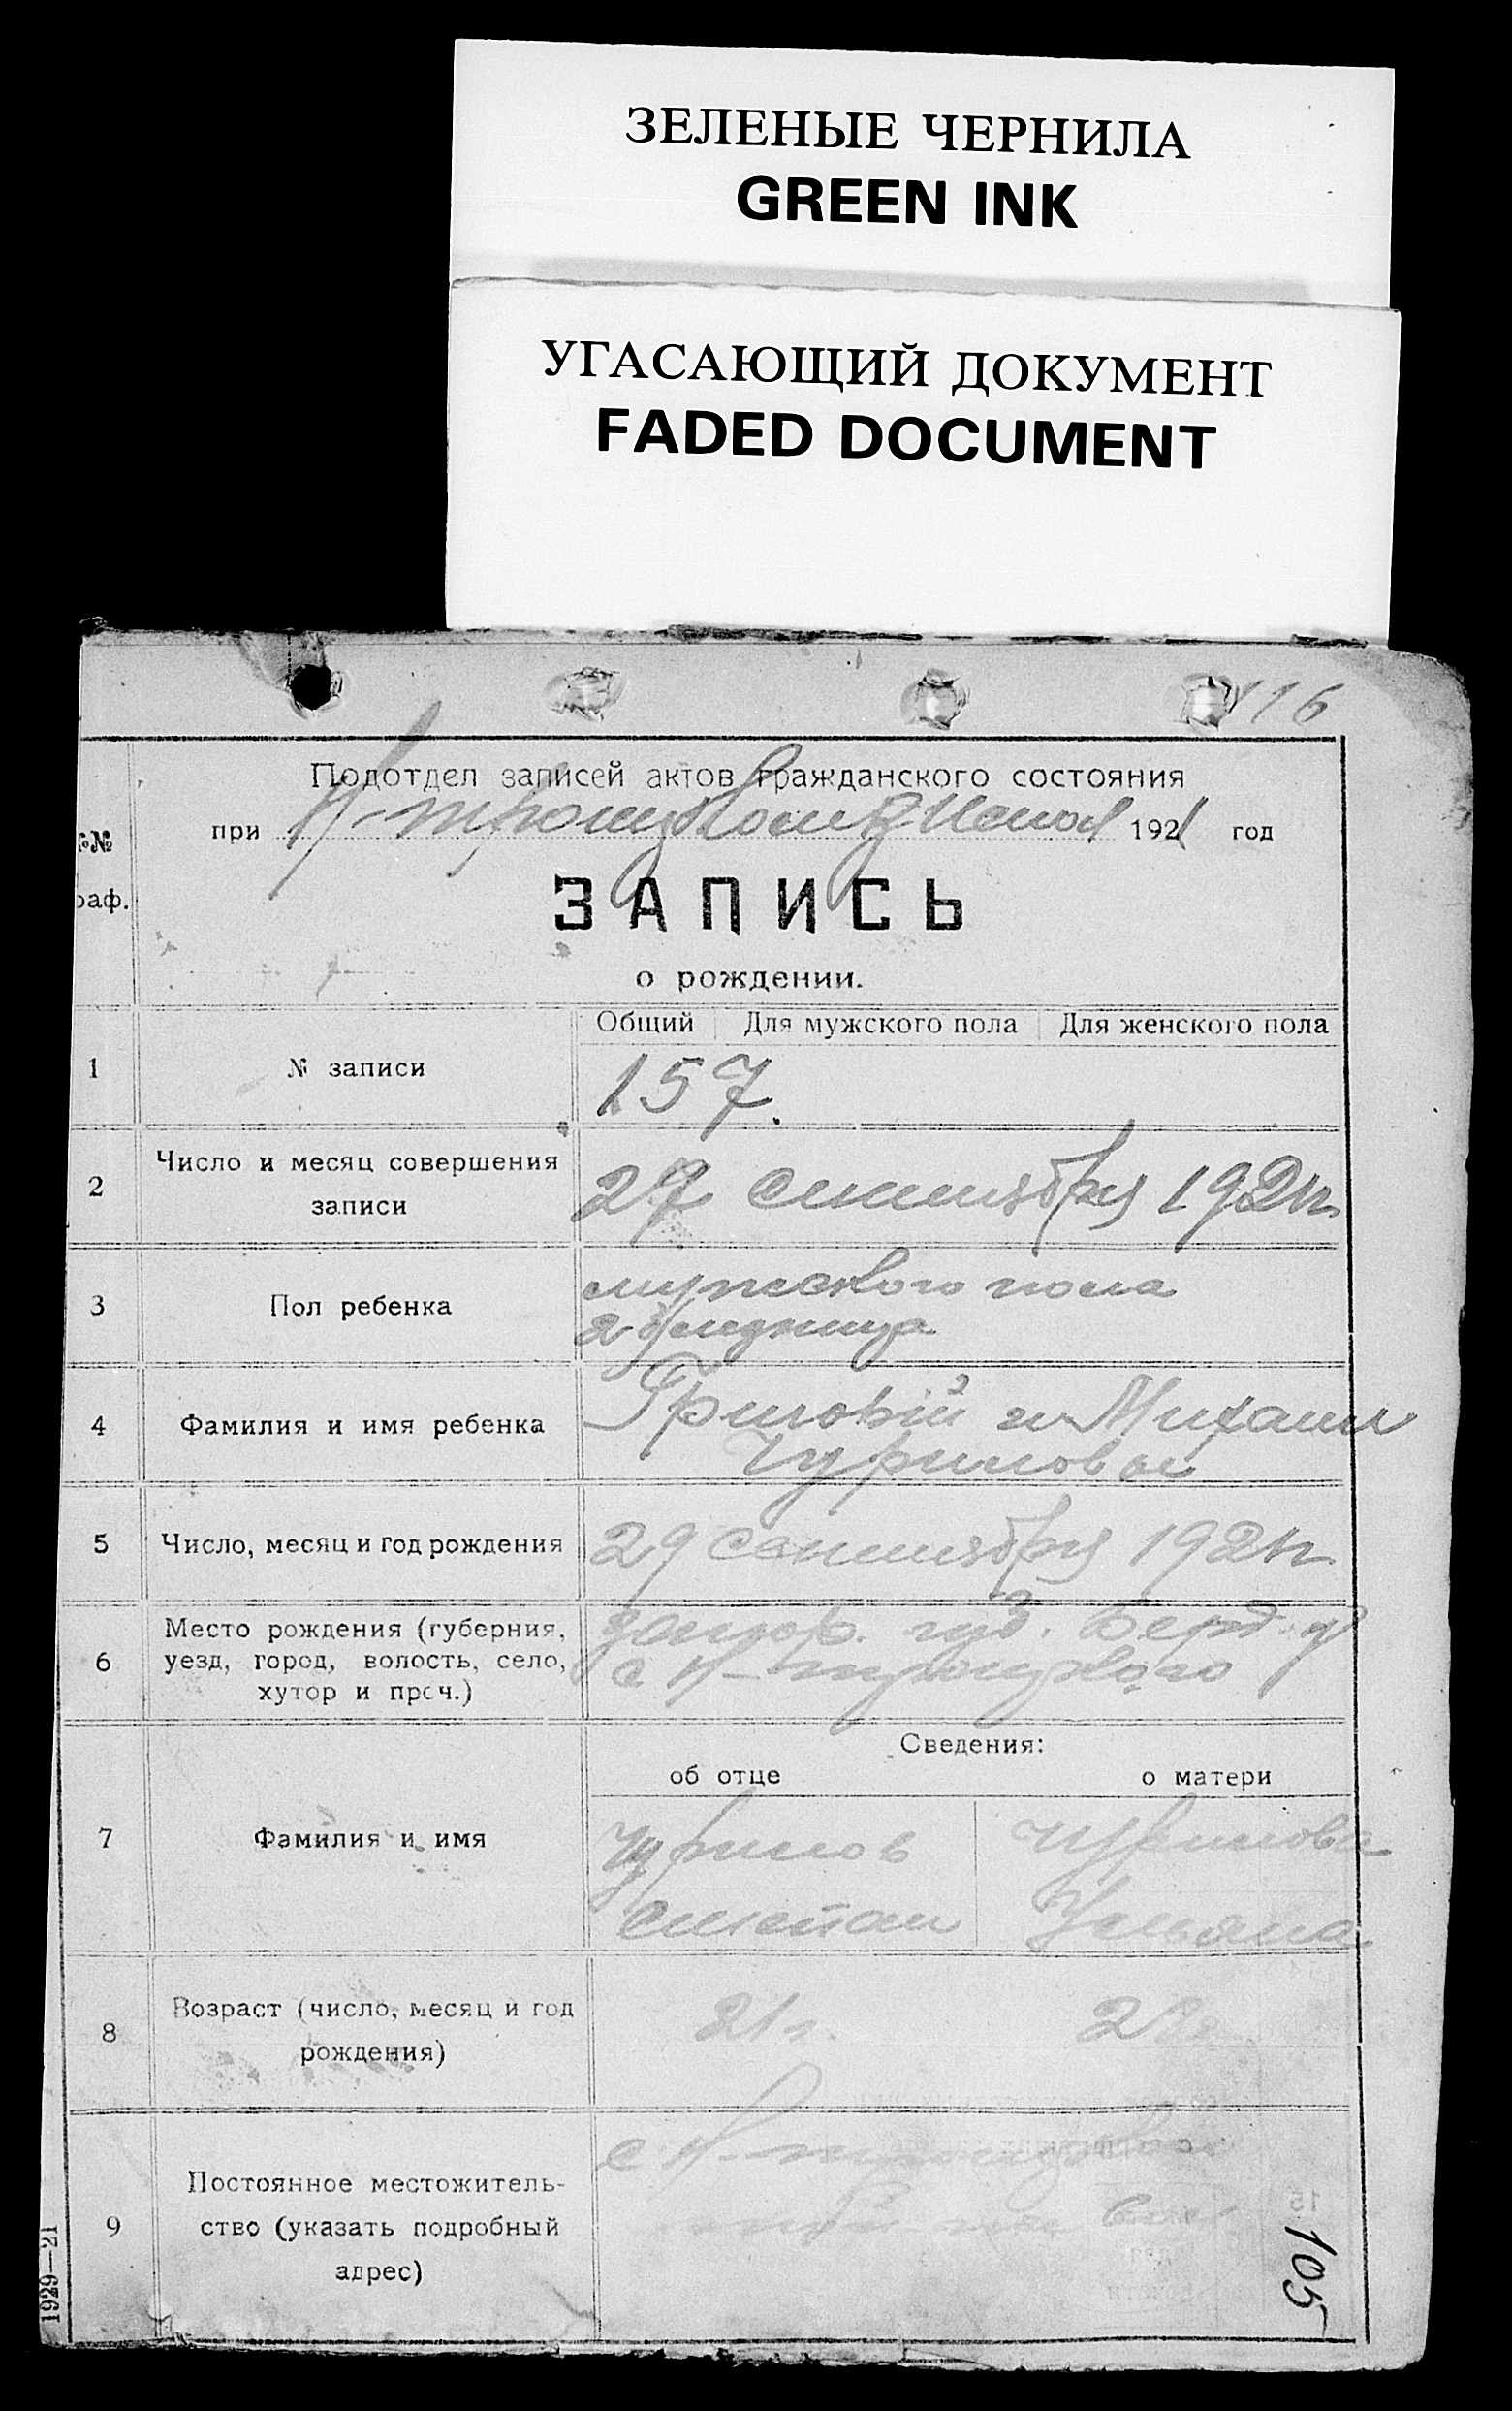 ЗЕЛЕНЫЕ ЧЕРНИЛА
GREEN INK
УГАСАЮЩИЙ ДОКУМЕНТ
FADED DOCUMENT
116
Подотдел записей актов гражданского состояния
при Н-троицком 1921 год
№№
раф.
ЗАПИСЬ
о рождении.
Общий Для мужского пола Для женского пола
1 № записи 157.
2 Число и месяц совершения
записи
27 сентября 1921г.
3 Пол ребенка
мужеского пола
2 близница
4 Фамилия и имя ребенка
Григорий и Михаил
Чуриловы
5 Число, месяц и год рождения 29 сентября 1921г.
6 Место рождения (губерния,
уезд, город, волость, село,
хутор и проч.)
запор. губ. Берд. у
с Н-троицкого
Сведения:
об отце о матери
7 Фамилия и имя
Чурилов Чурилова
степан Ульяна
8 Возраст (число, месяц и год
рождения)
21 г.
9 Постоянное местожитель-
ство (указать подробный
адрес)
с. Н-троицкое
105
1929—21